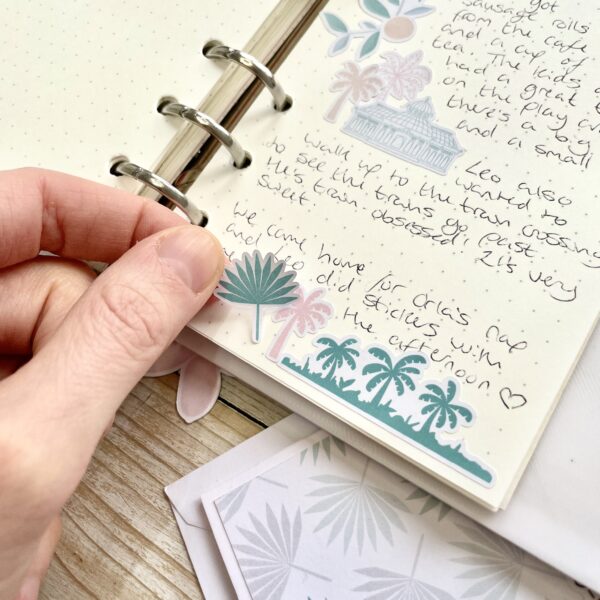 got
sausage rolls
from the cafe
and a cup of
tea. The kids
had a great
on the play
there's a big
and a small
Leo also
wanted to
walk up to the train crossing
to see the trains go past.
He's train obsessed! It's very
sweet.
We came home for Orla's nap
and did stickers with
the afternoon ♡